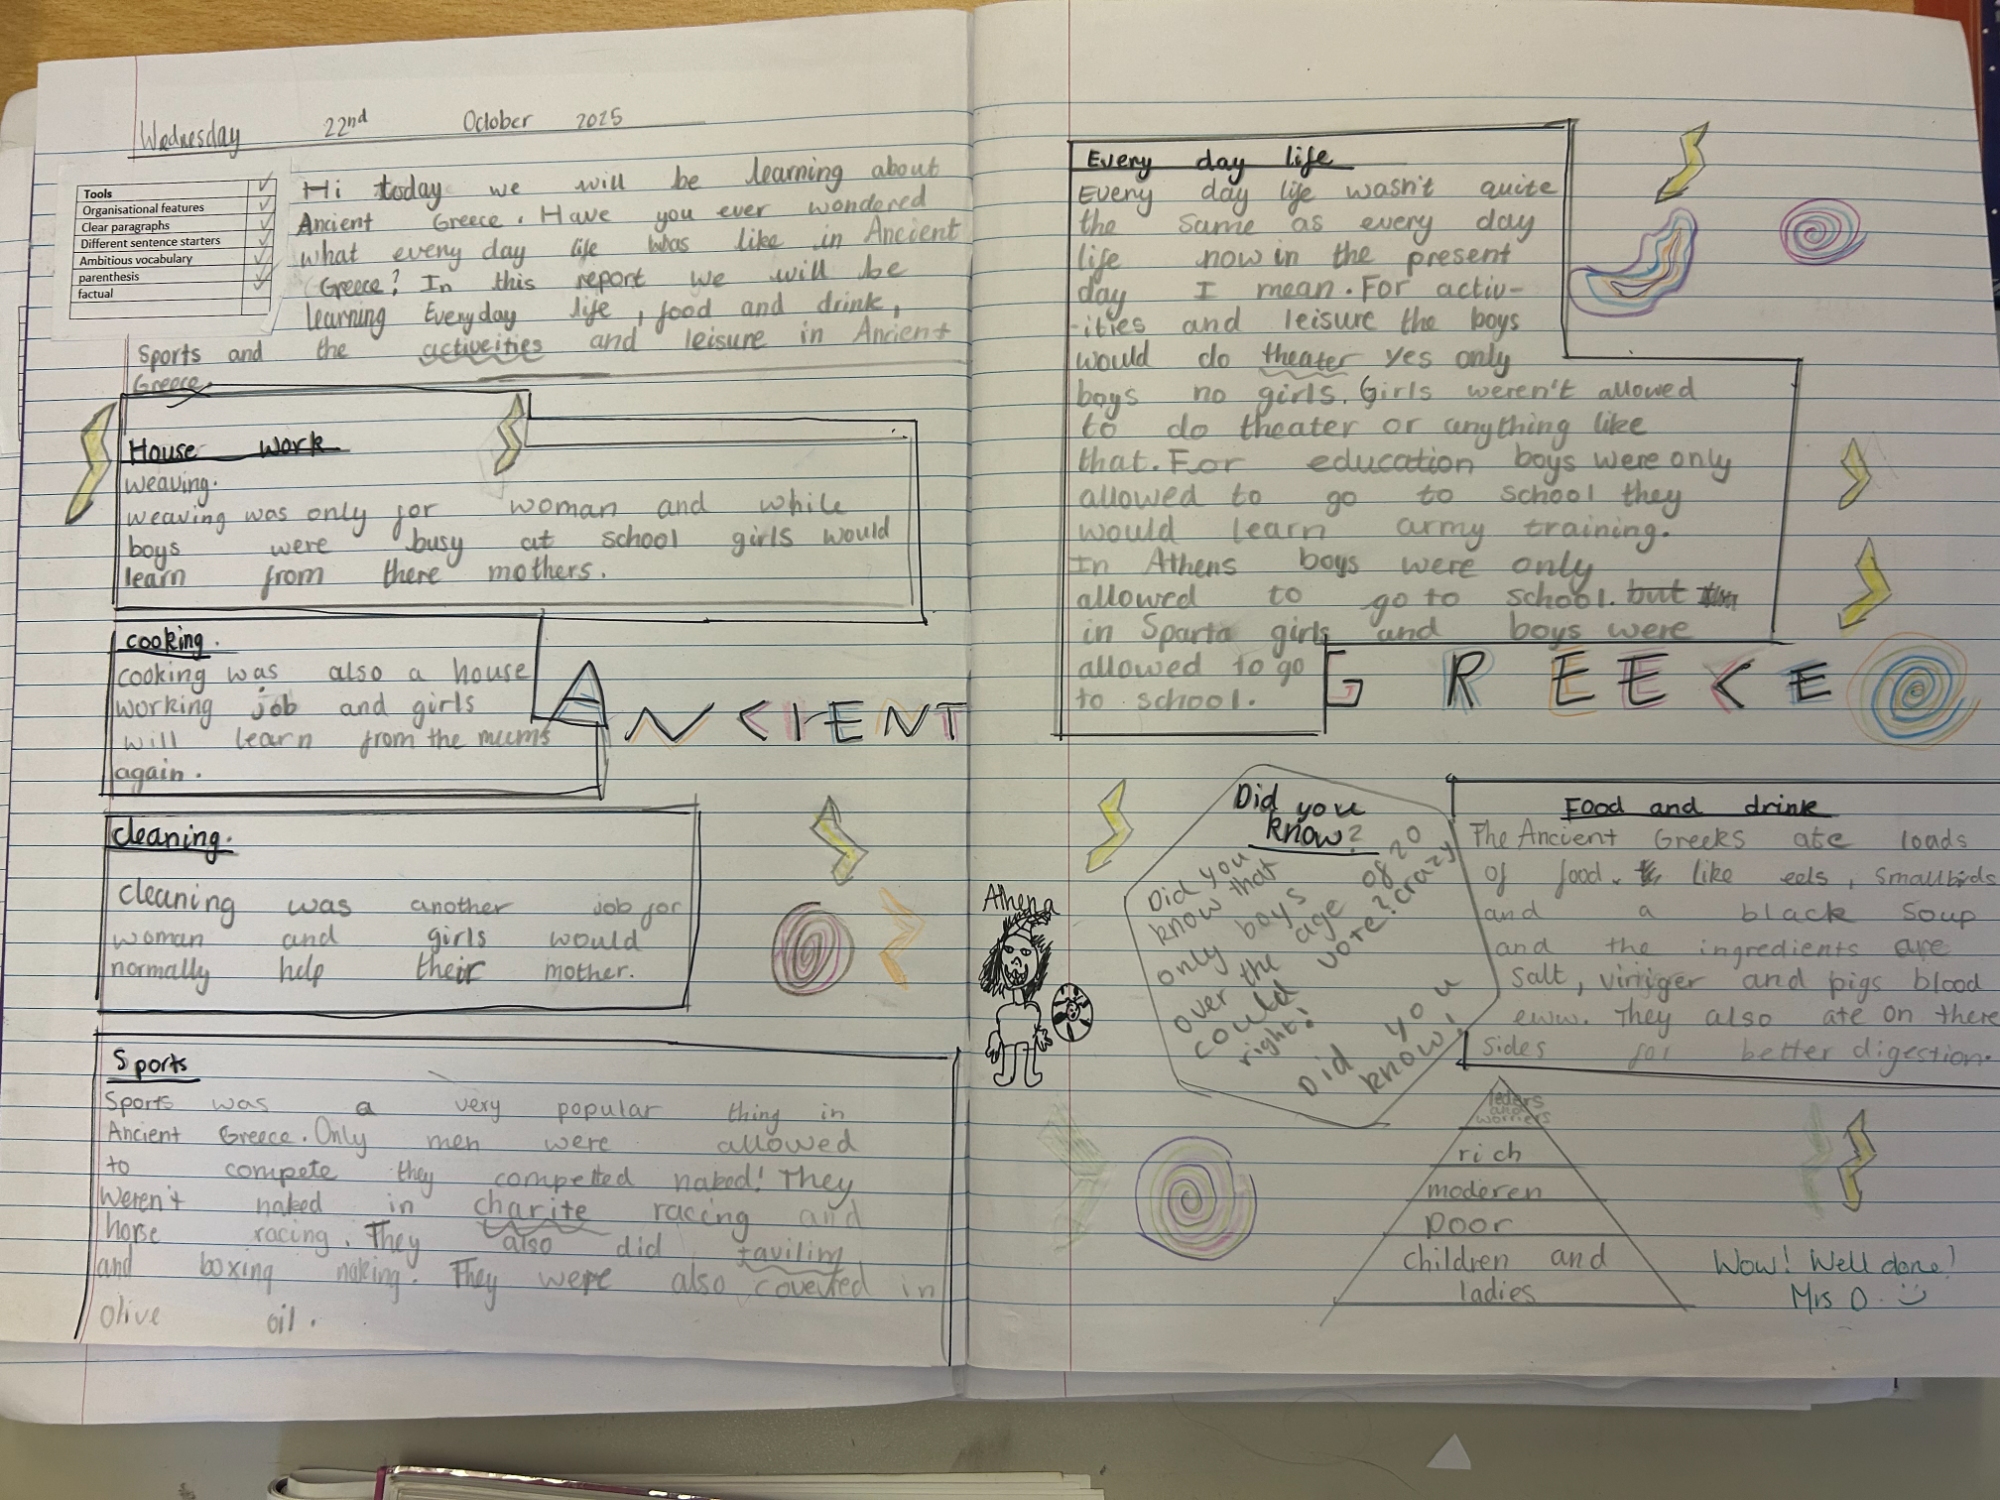 Wednesday 22nd October 2025
Tools
Organisational features
Clear paragraphs
Different sentence starters
Ambitious vocabulary
parenthesis
factual
Hi today we will be learning about
Ancient Greece. Have you ever wondered
what every day life was like in Ancient
Greece? In this report we will be
learning Everyday life, food and drink,
Sports and the activeities and leisure in Ancient
Greece.
House work
weaving.
weaving was only for woman and while
boys were busy at school girls would
learn from there mothers.
cooking.
cooking was also a house
working job and girls
will learn from the mums
again.
cleaning.
cleaning was another job for
woman and girls would
normally help their mother.
Sports
Sports was a very popular thing in
Ancient Greece. Only men were allowed
to compete they competed naked! They
weren't naked in charite racing and
horse racing. They also did tavilim
and boxing naking. They were also covered in
olive oil.
ANCIENT GREECE
Every day life
Every day life wasn't quite
the same as every day
life now in the present
day I mean. For activ-
-ities and leisure the boys
would do theater yes only
boys no girls. Girls weren't allowed
to do theater or anything like
that. For education boys were only
allowed to go to school they
would learn army training.
In Athens boys were only
allowed to go to school. but
in Sparta girls and boys were
allowed to go
to school.
Athena
Did you
know?
Did you
know that
only boys
over the age of 20
could vote? crazy
right!
Did you
know!
Food and drink
The Ancient Greeks ate loads
of food. like eels, small birds
and a black soup
and the ingredients are
Salt, viniger and pigs blood
eww. They also ate on there
sides for better digestion.
leders
and
worriers
rich
moderen
poor
children and
ladies
Wow! Well done!
Mrs O.